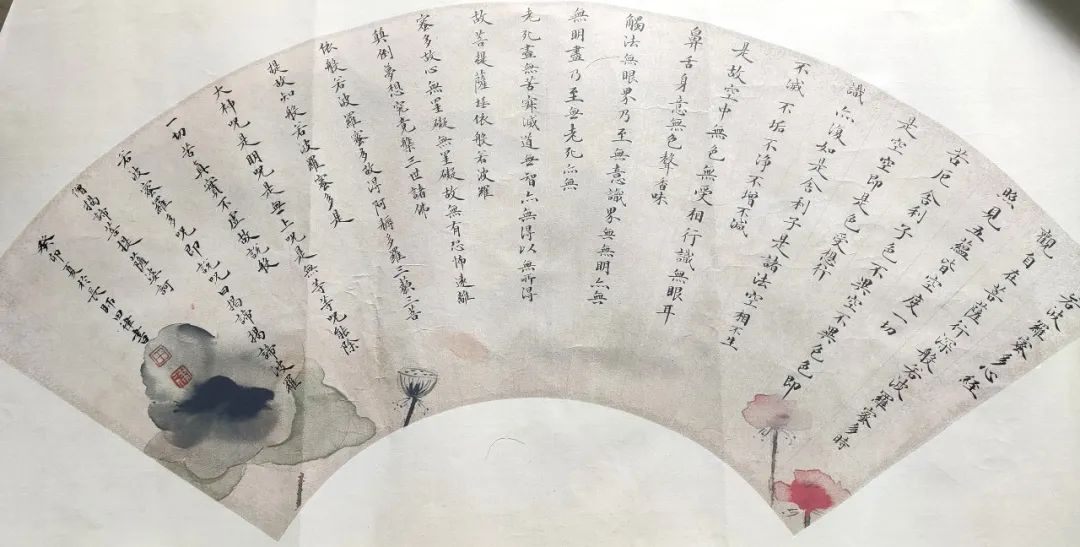 若波羅蜜多心經
觀自在菩薩行深般若波羅蜜多時
照見五蘊皆空度一切
苦厄舍利子色不異空不異色色即
是空空即是色受想行
識亦復如是舍利子是諸法空相不生
不滅不垢不淨不增不減
是故空中無色無受相行識無眼耳
鼻舌身意無色聲香味
觸法無眼界乃至無意識界無無明亦無
無明盡乃至無老死亦無
老死盡無苦寂滅道無智亦無得以無所得
故菩提薩埵依般若波羅
蜜多故心無罣礙無罣礙故無有恐怖遠離
顛倒夢想究竟槃三世諸佛
依般若波羅蜜多故得阿耨多羅三藐三菩
提故知般若波羅蜜多是
大神咒是明咒是無上咒是無等等咒能除
一切苦真實不虛故說般
若波蜜羅多咒即說咒曰揭諦揭諦波羅
僧揭諦菩提薩婆訶
癸卯夏於長師書